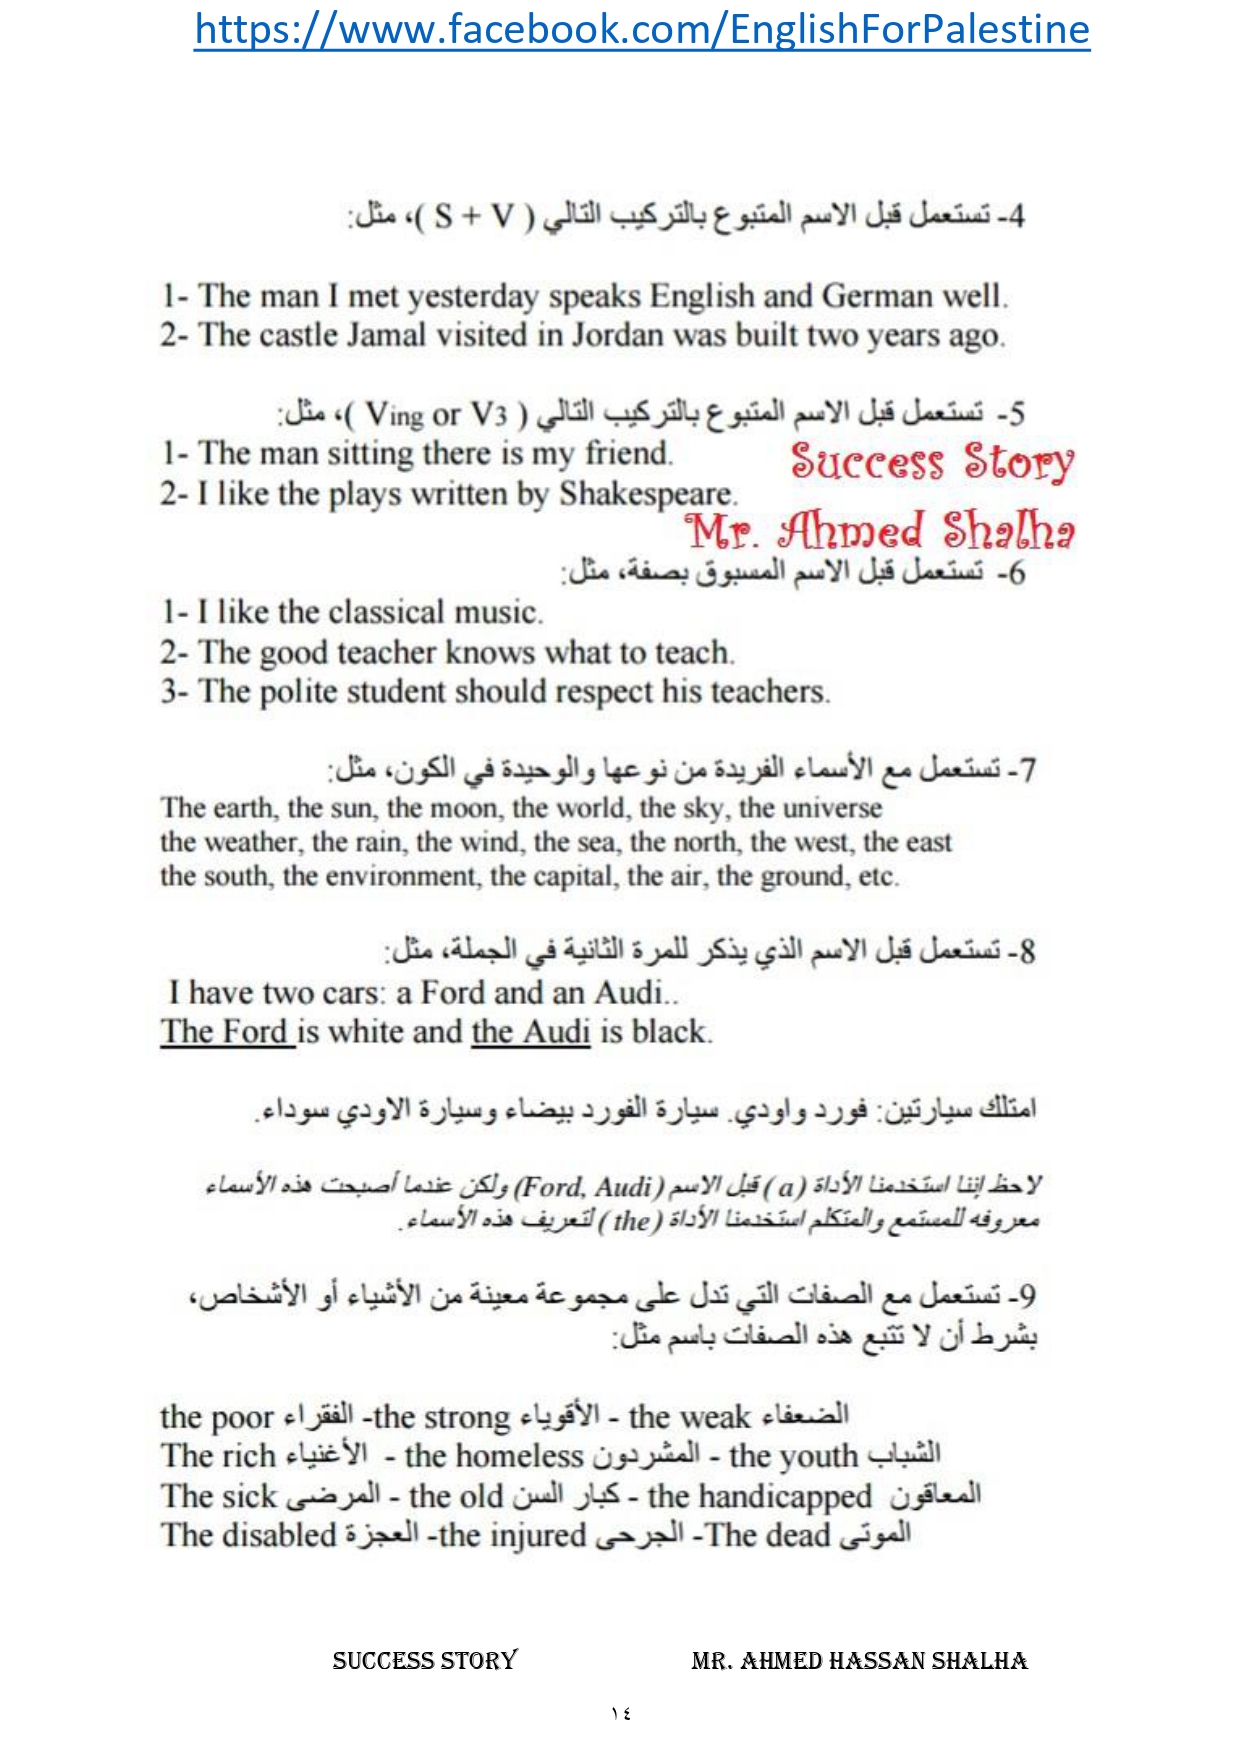 https://www.facebook.com/EnglishForPalestine
4- تستعمل قبل الاسم المتبوع بالتركيب التالي ( S + V )، مثل:
1- The man I met yesterday speaks English and German well.
2- The castle Jamal visited in Jordan was built two years ago.
5- تستعمل قبل الاسم المتبوع بالتركيب التالي ( Ving or V3 )، مثل:
1- The man sitting there is my friend.
Success Story
2- I like the plays written by Shakespeare.
Mr. Ahmed Shalha
6- تستعمل قبل الاسم المسبوق بصفة، مثل:
1- I like the classical music.
2- The good teacher knows what to teach.
3- The polite student should respect his teachers.
7- تستعمل مع الأسماء الفريدة من نوعها والوحيدة في الكون، مثل:
The earth, the sun, the moon, the world, the sky, the universe
the weather, the rain, the wind, the sea, the north, the west, the east
the south, the environment, the capital, the air, the ground, etc.
8- تستعمل قبل الاسم الذي يذكر للمرة الثانية في الجملة، مثل:
I have two cars: a Ford and an Audi..
The Ford is white and the Audi is black.
امتلك سيارتين: فورد واودي. سيارة الفورد بيضاء وسيارة الاودي سوداء.
لاحظ إننا استخدمنا الأداة ( a ) قبل الاسم (Ford, Audi) ولكن عندما أصبحت هذه الأسماء
معروفه للمستمع والمتكلم استخدمنا الأداة ( the ) لتعريف هذه الأسماء.
9- تستعمل مع الصفات التي تدل على مجموعة معينة من الأشياء أو الأشخاص،
بشرط أن لا تتبع هذه الصفات باسم مثل:
the poor الفقراء -the strong الأقوياء - the weak الضعفاء
The rich الأغنياء - the homeless المشردون - the youth الشباب
The sick المرضى - the old كبار السن - the handicapped المعاقون
The disabled العجزة -the injured الجرحى -The dead الموتى
SUCCESS STORY MR. AHMED HASSAN SHALHA
١٤